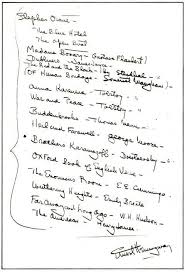 Stephen Crane -
The Blue Hotel
The Open Boat
Madame Bovary - Gustave Flaubert
Dubliners - James Joyce
The Red and the Black - by Stendhal
(Of Human Bondage - Somerset Maugham)
Anna Karenina - Tolstoy
War and Peace - Tolstoy
Buddenbrooks - Thomas Mann
Hail and Farewell - George Moore
Brothers Karamazoff - Dostoevsky
Oxford Book of English Verse
The Enormous Room - E.E. Cummings
Wuthering Heights - Emily Bronte
Far Away and Long Ago - W.H. Hudson
The American - Henry James
Ernest Hemingway